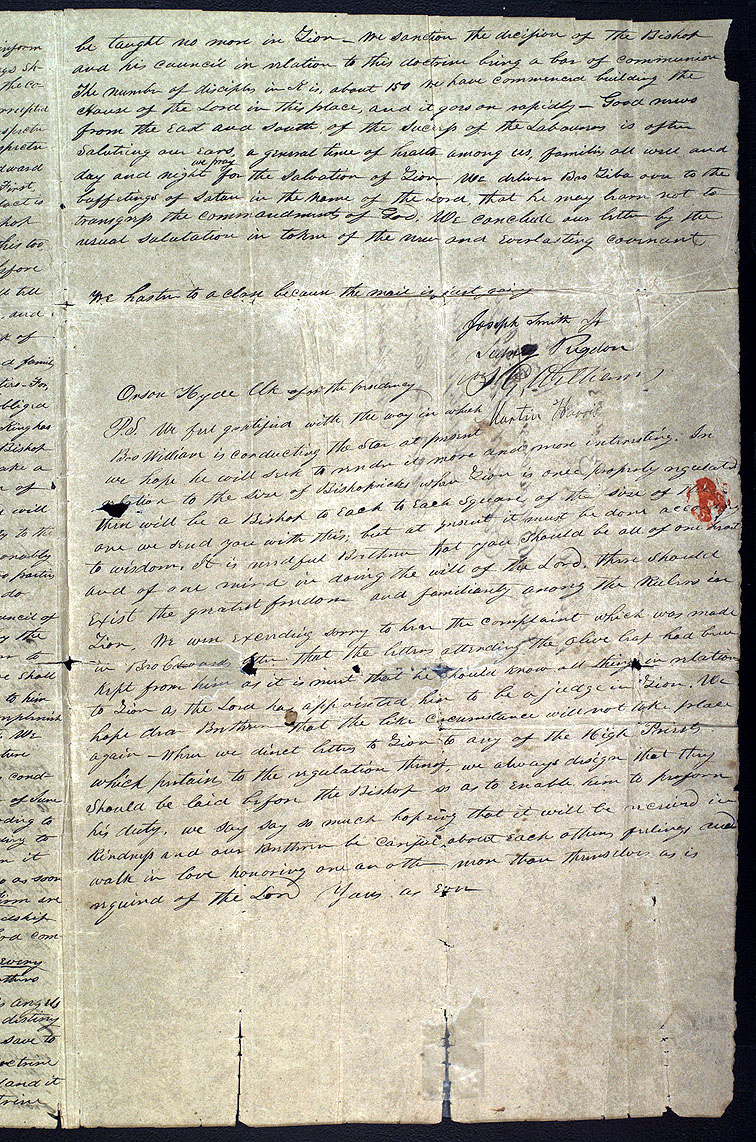 be taught no more in Zion — We sanction the decision of the Bishop
and his council in relation to this doctrine being a bar of communion
The number of disciples in K is, about 150 we have commenced building the
House of the Lord in this place, and it goes on rapidly — Good news
from the East and South of the success of the Labourers is often
saluting our ears, a general time of health among us, families all well and
we pray
day and night for the salvation of Zion We deliver Bro Ziba over to the
buffetings of Satan in the name of the Lord that he may learn not to
transgress the commandments of God. We conclude our letter by the
usual salutation in token of the new and everlasting covenant
We hasten to a close because the mail is just going
Joseph Smith Jr
Sidney Rigdon
F. G. Williams
Orson Hyde Clk of the Presidency
Martin Harris
P.S. We feel gratified with the way in which
Bro William is conducting the Star at present
we hope he will seek to render it more and more interesting. In
relation to the size of Bishopricks when Zion is once properly regulated
there will be a Bishop to Each to Each Square of the size of
one we send you with this; but at present it must be done according
to wisdom, It is needful Brethren that you should be all of one heart
and of one mind in doing the will of the Lord. there should
Exist the greatest freedom and familiarity among the Rulers in
Zion, We were exceeding sorry to hear the complaint which was made
in Bro Edwards letter that the letters attending the olive leaf had been
kept from him as it is meet that he should know all things in relation
to Zion as the Lord has appointed him to be a judge in Zion. We
hope dear Brethren that the like circumstance will not take place
again — When we direct letters to Zion to any of the High Priests
which pertain to the regulation things we always design that they
should be laid before the Bishop so as to enable him to preform
his duty, we say say so much hopeing that it will be received in
kindness and our Brethren be careful about each others feelings and
walk in love honoring one another more than themselves as is
required of the Lord Yours. as Ever
inform
the co
Edward
First,
fact is
this too
before
till
and
k of
Bishop
ake a
will
ly to the
parties
do
council of
the
shall
to him
We
cond-
of June
it
as soon
Lord com-
Every
angels
destiny
save to
doctrine
and it